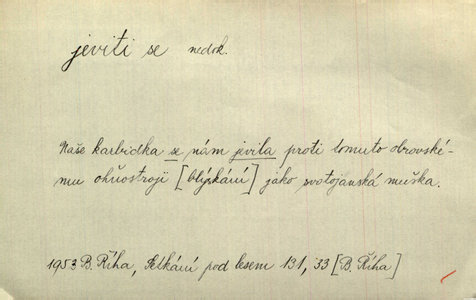 jeviti se nedok.
Naše karbidka se nám jevila proti tomuto obrovské-
mu ohňostroji [blýskání] jako svatojanská muška.
1953 B. Říha, Setkání pod lesem 131, 33 [B. Říha]